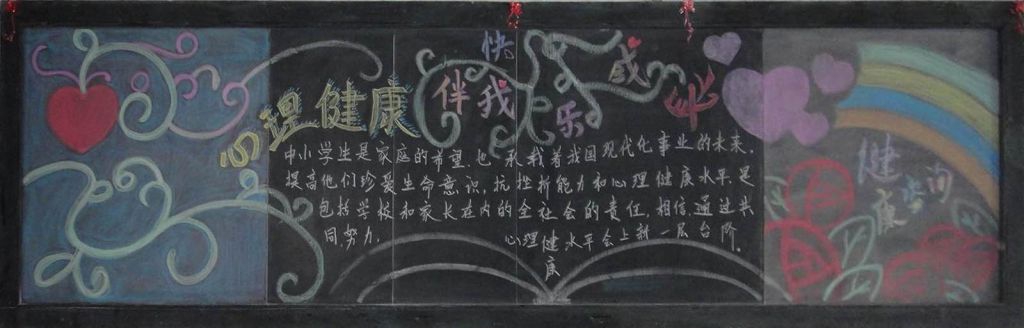 心理健康
伴我快乐成长
中小学生是家庭的希望,也承载着我国现代化事业的未来,
提高他们珍爱生命意识,抗挫折能力和心理健康水平,是
包括学校和家长在内的全社会的责任,相信通过共
同努力,心理健康水平会上新一层台阶。
健康